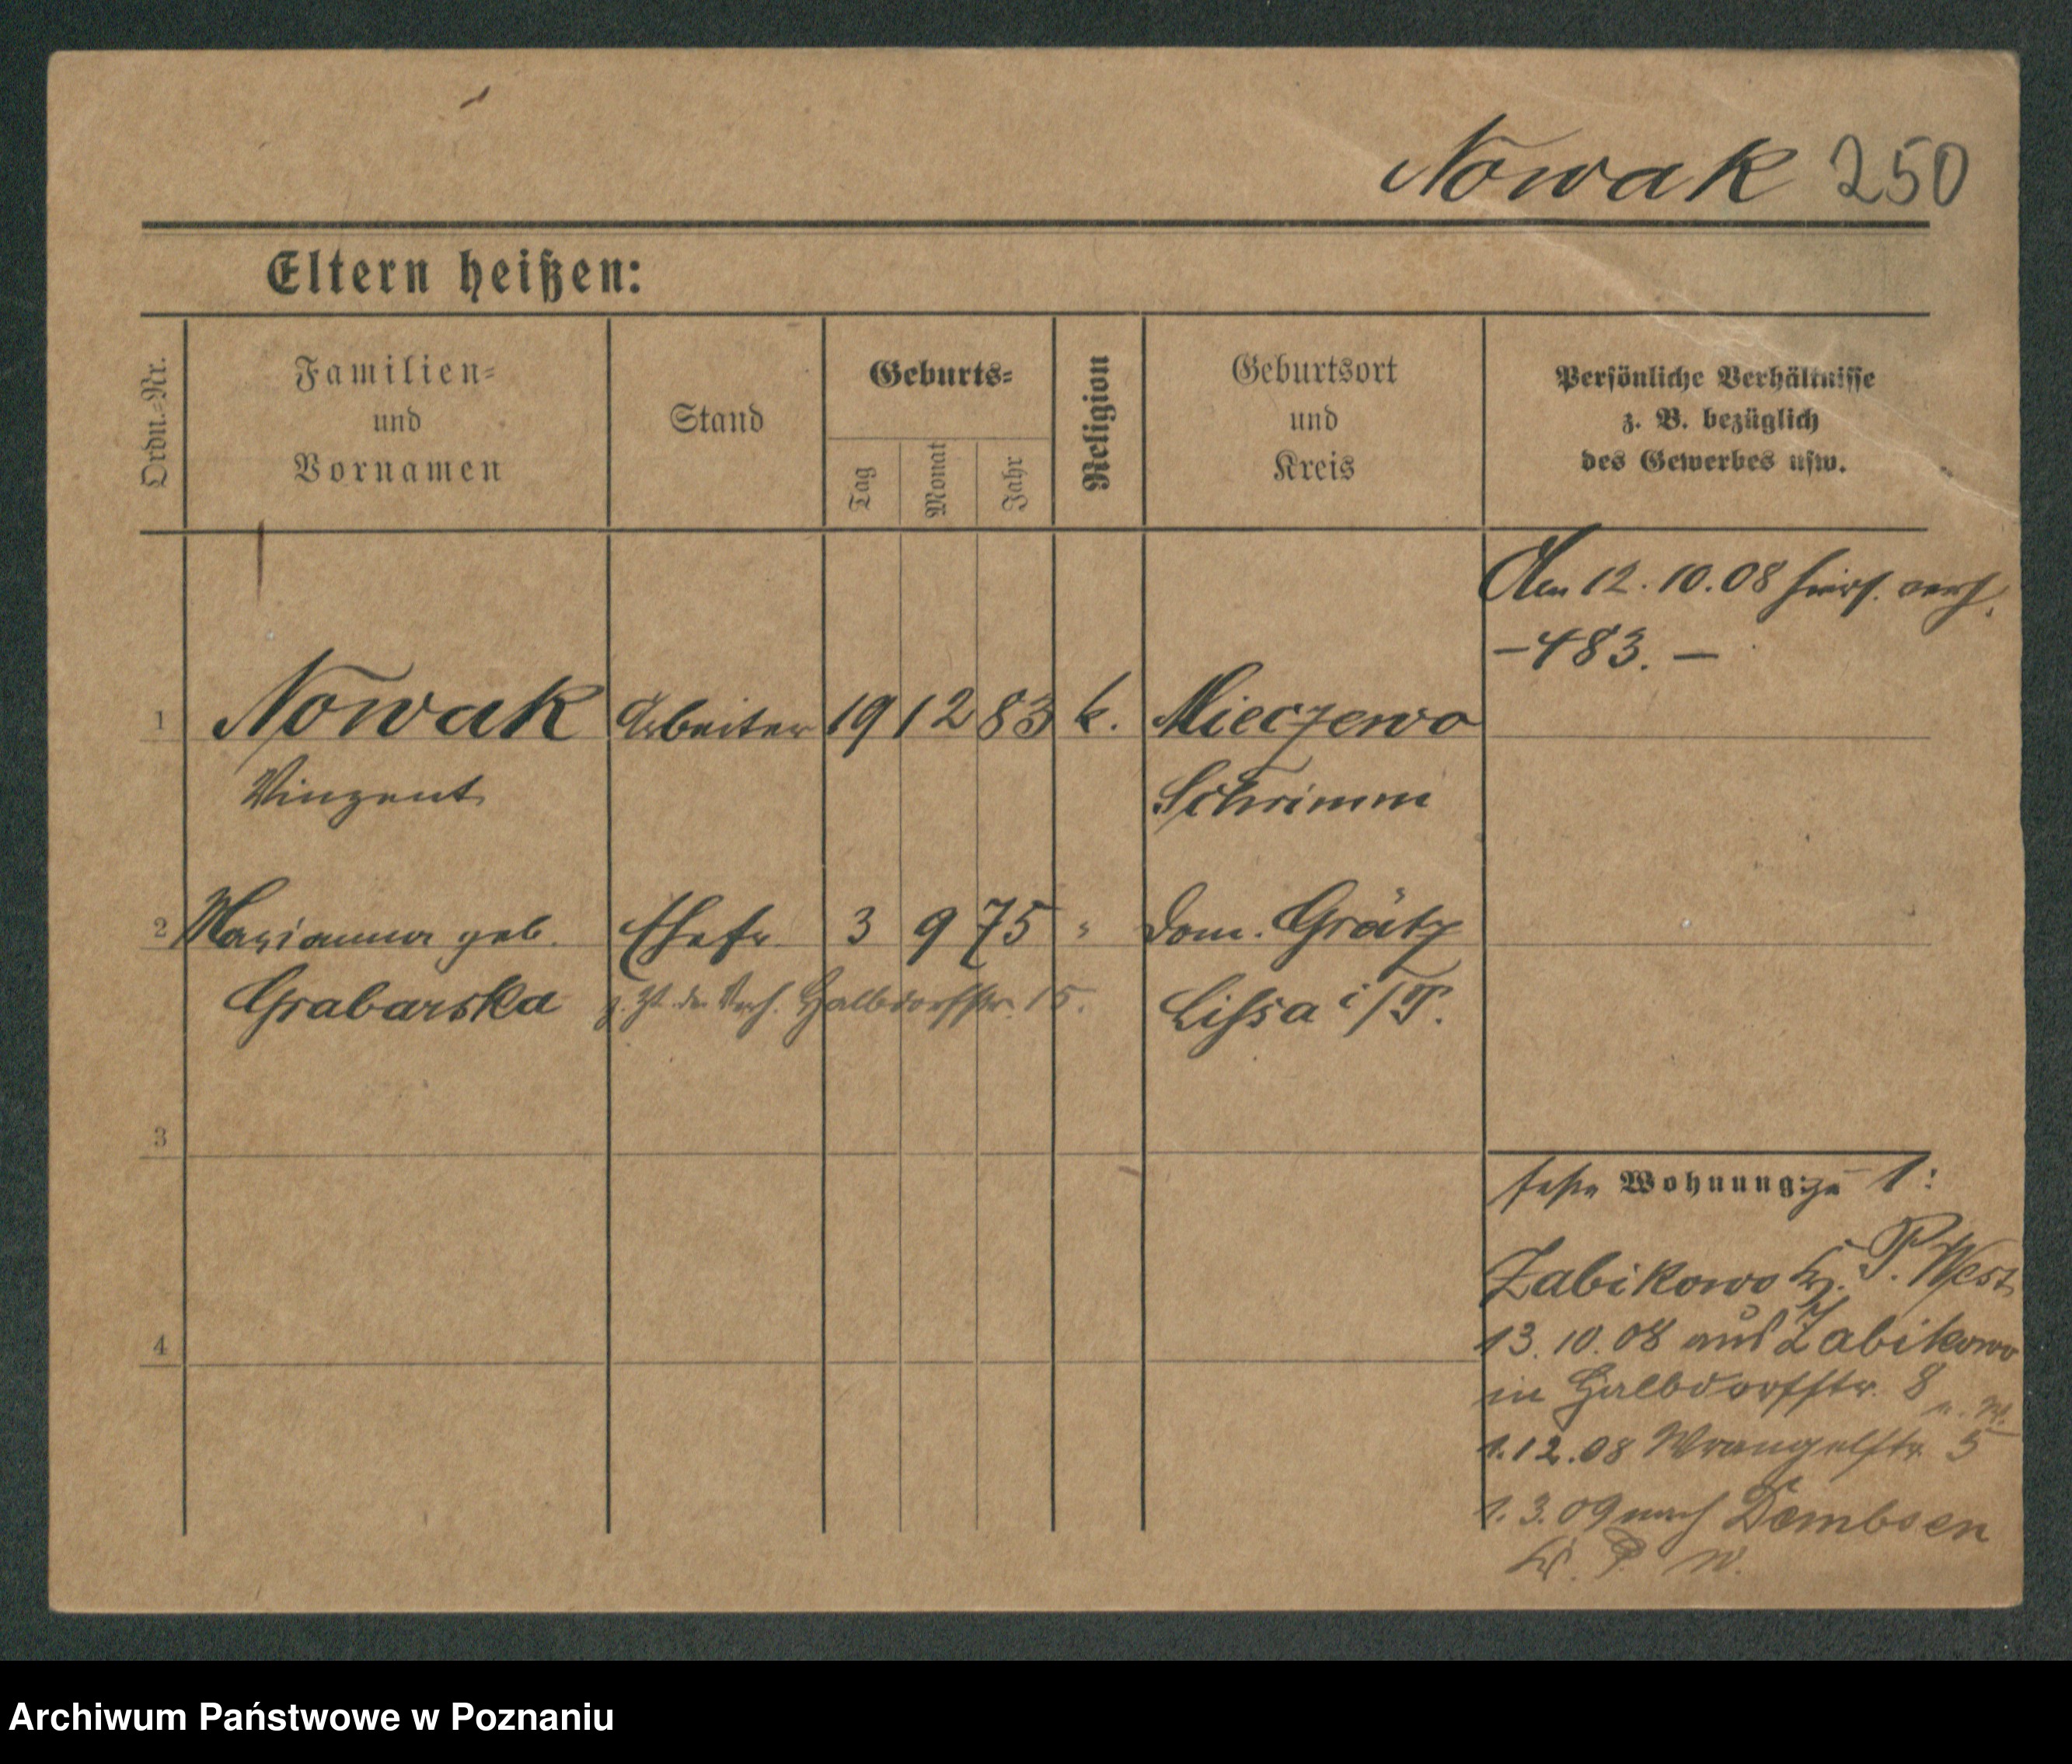 Nowak 250
Eltern heißen:
Ordn.=Nr.
Familien=
und
Vornamen
Stand
Geburts=
Tag
Monat
Jahr
Religion
Geburtsort
und
Kreis
Persönliche Verhältnisse
z. B. bezüglich
des Gewerbes usw.
Am 12.10.08 hiers. verh.
– 483. –
1 Nowak Arbeiter 19 12 83 k. Mieczewo
Vinzent Schrimm
2 Marianna geb. Ehefr 3 9 75 " Dom. Grätz
Grabarska z. Zt. der Verh. Halbdorfstr. 15. Lissa i/P.
3
feste Wohnung: zu 1:
Zabikowo Kr. P. West
4
13.10.08 aus Zabikowo
in Halbdorfstr. 8
1.12.08 Wrangelstr. 5
1.3.09 nach Dembsen
Kr. P. W.
Archiwum Państwowe w Poznaniu